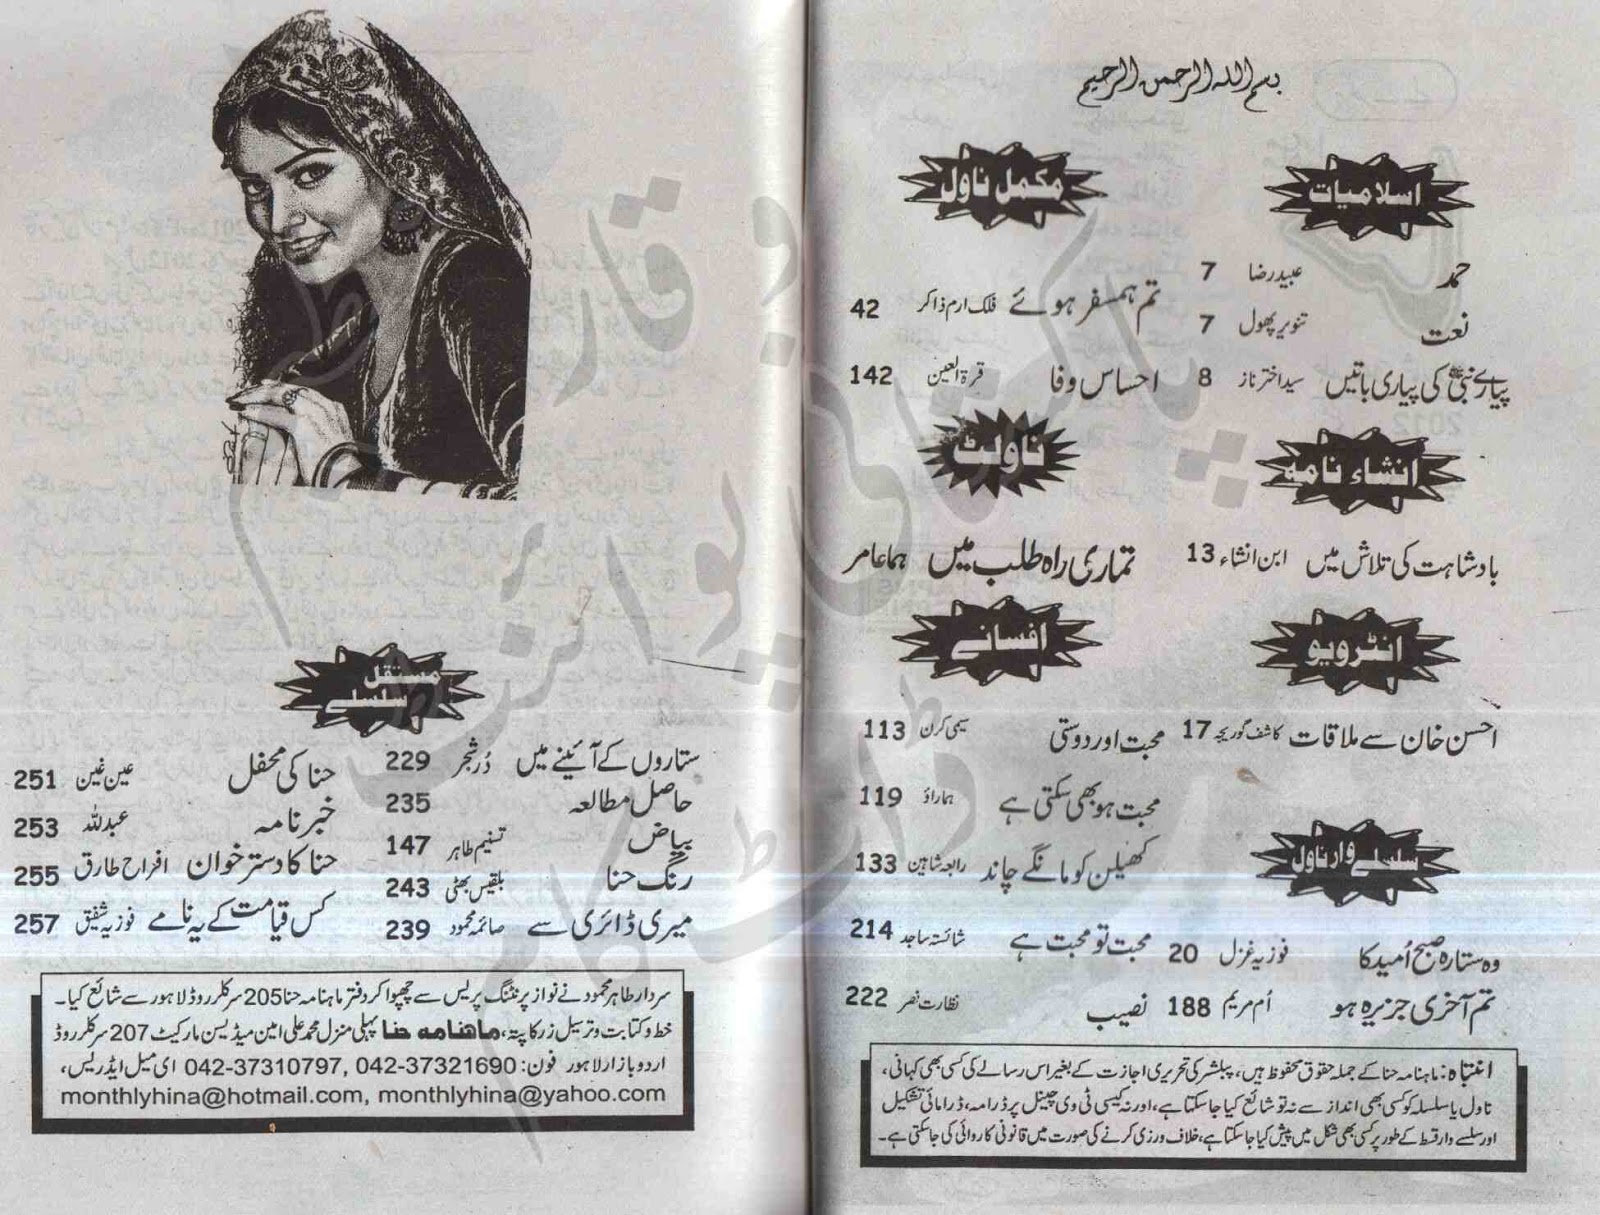 بسم الله الرحمن الرحيم
اسلامیات
حمد عبید رضا 7
نعت تنویر پھول 7
پیارے نبیؐ کی پیاری باتیں سید اختر ناز 8
انشاء نامہ
بادشاہت کی تلاش میں ابن انشاء 13
انٹرویو
احسن خان سے ملاقات کاشف گوریجہ 17
سلسلے وار ناول
وہ ستارہ صبح اُمید کا فوزیہ غزل 20
تم آخری جزیرہ ہو اُم مریم 188
مکمل ناول
تم ہمسفر ہوئے فلک ارم ذاکر 42
احساس وفا قرۃ العین 142
ناولٹ
تمہاری راہ طلب میں ہما عامر
افسانے
محبت اور دوستی سیمی کرن 113
محبت ہو بھی سکتی ہے ہما راؤ 119
کھیلن کو مانگے چاند رابعہ شاہین 133
محبت تو محبت ہے شائستہ ساجد 214
نصیب نظارت نصر 222
انتباہ: ماہنامہ حنا کے جملہ حقوق محفوظ ہیں، پبلشر کی تحریری اجازت کے بغیر اس رسالے کی کسی بھی کہانی،
ناول یا سلسلہ کو کسی بھی انداز سے نہ تو شائع کیا جا سکتا ہے، اور نہ کسی ٹی وی چینل پر ڈرامہ، ڈرامائی تشکیل
اور سلسلے وار قسط کے طور پر کسی بھی شکل میں پیش کیا جا سکتا ہے، خلاف ورزی کرنے کی صورت میں قانونی کاروائی کی جا سکتی ہے۔
مستقل
سلسلے
ستاروں کے آئینے میں دُر شجر 229
حاصل مطالعہ 235
بیاض تسنیم طاہر 147
رنگ حنا بلقیس بھٹی 243
میری ڈائری سے صائمہ محمود 239
حنا کی محفل عین غین 251
خبر نامہ عبداللہ 253
حنا کا دستر خوان افراح طارق 255
کس قیامت کے یہ نامے فوزیہ شفیق 257
سردار طاہر محمود نے نواز پرنٹنگ پریس سے چھپوا کر دفتر ماہنامہ حنا 205 سرکلر روڈ لاہور سے شائع کیا۔
خط و کتابت و ترسیل زر کا پتہ، ماہنامہ حنا پہلی منزل محمد علی امین میڈیسن مارکیٹ 207 سرکلر روڈ
اردو بازار لاہور فون: 042-37310797, 042-37321690 ای میل ایڈریس،
monthlyhina@hotmail.com, monthlyhina@yahoo.com
پاکستانی پوائنٹ
ڈاٹ کام